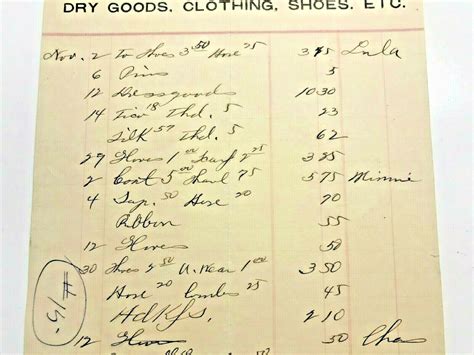 DRY GOODS, CLOTHING, SHOES, ETC.
Nov. 2 To Shoes 3 50 Hose 25 3 75 Lula
6 Pins 5
12 Dressgoods 10 30
14 18 Thd. 5 23
Silk 57 Thd. 5 62
29 Gloves 1 00 Scarf 2 25 3 25
2 Coat 5 00 Shawl 75 5 75 Minnie
4 Sup. 50 Hose 20 70
Ribbon 55
12 Gloves 50
30 Shoes 2 50 U. Wear 1 00 3 50
Hose 20 Combs 25 45
Hdkfs. 2 10
# 15.
12 50 Chas